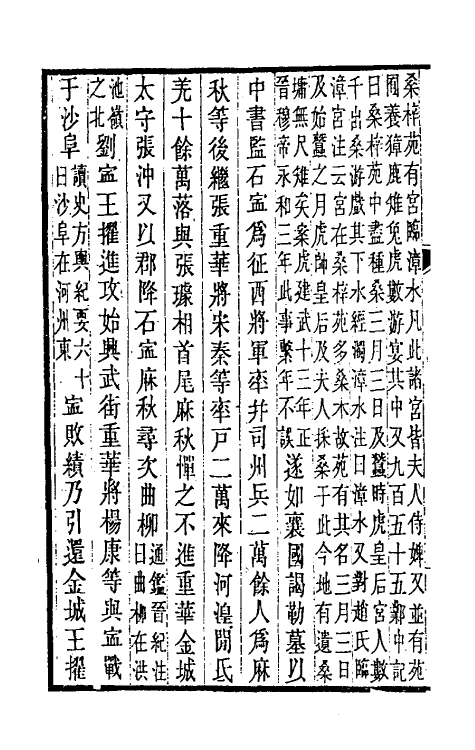 桑梓苑有宮臨漳水凡此諸宮皆夫人侍婢又並有苑
囿養獐鹿雉兔虎數游宴其中又九百五十五鄴中記
曰桑梓苑中盡種桑三月三日及蠶時虎皇后宮人數
千出桑游戲其下水經濁漳水注曰漳水又對趙氏臨
漳宮注云宮在桑梓苑多桑木故苑有其名三月三日
及始蠶之月虎帥皇后及夫人採桑于此今地有遺桑
墉無尺雉矣案虎建武十三年正
晉穆帝永和三年此事繫年不誤
遂如襄國謁勒墓以
中書監石寍爲征西將軍率幷司州兵二萬餘人爲麻
秋等後繼張重華將宋秦等率戸二萬來降河湟閒氐
羌十餘萬落與張璩相首尾麻秋憚之不進重華金城
太守張沖又以郡降石寍麻秋尋次曲柳
通鑑晉紀注
曰曲柳在洪
池嶺
之北
劉寍王擢進攻始興武街重華將楊康等與寍戰
于沙阜
讀史方輿紀要六十
曰沙阜在河州東
寍敗績乃引還金城王擢